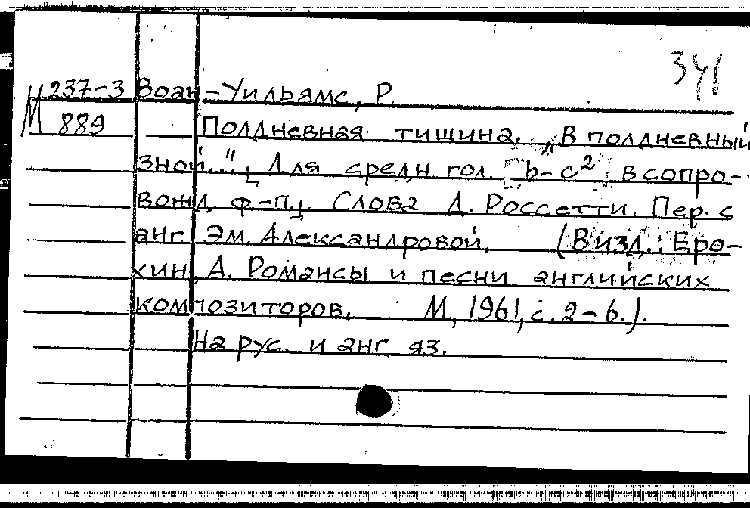 341
М 237-3 Воан-Уильямс, Р.
889 Полдневная тишина. "В полдневный
зной..". Для средн. гол. [b-c²] в сопро-
вожд. ф-п. Слова Д. Россетти. Пер. с
анг. Эм. Александровой. (В изд.: Еро-
хин, А. Романсы и песни английских
композиторов. М, 1961, с. 2-6.).
На рус. и анг. яз.